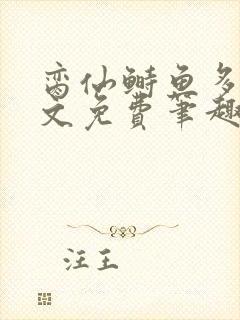 脔仙鲥鱼多
文免费笔趣
汪王